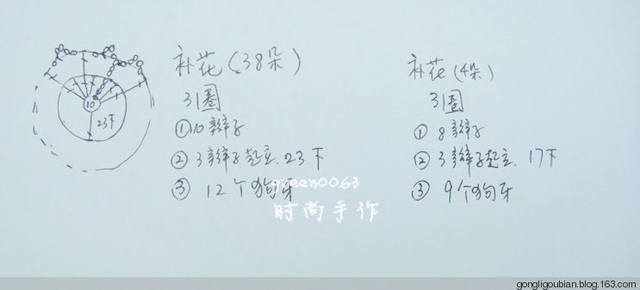 补花(38朵)
3圈
①10辫子
②3辫子起立.23下
③12个狗牙
补花(4朵)
3圈
①8辫子
②3辫子起立.17下
③9个狗牙
10
23下
green0063
时尚手作
gongligoubian.blog.163.com